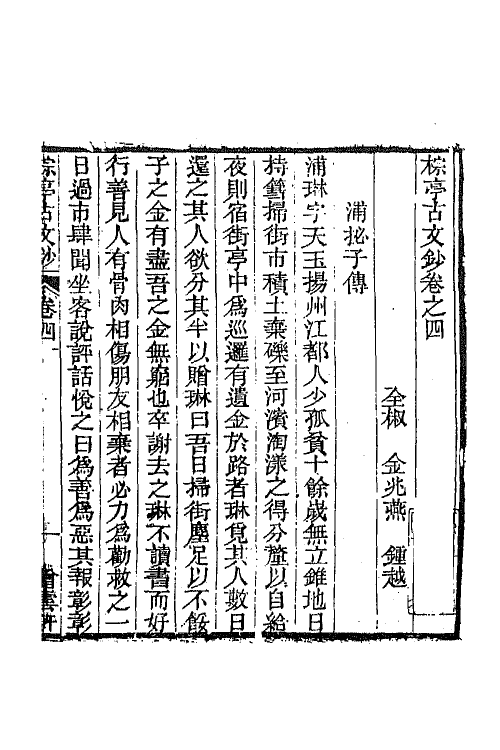 棕亭古文鈔卷之四
全椒 金兆燕 鍾越
浦拯子傳
浦琳字天玉揚州江都人少孤貧十餘歲無立錐地日
持籤掃街市積土棄礫至河濱淘漾之得分釐以自給
夜則宿街亭中爲巡邏有遺金於路者琳覓其人數日
還之其人欲分其半以贈琳曰吾日掃街塵足以不餒
子之金有盡吾之金無窮也卒謝去之琳不讀書而好
行善見人有骨肉相傷朋友相棄者必力爲勸救之一
日過市肆聞坐客說評話悅之曰爲善爲惡其報彰彰
棕亭古文鈔 卷四 一